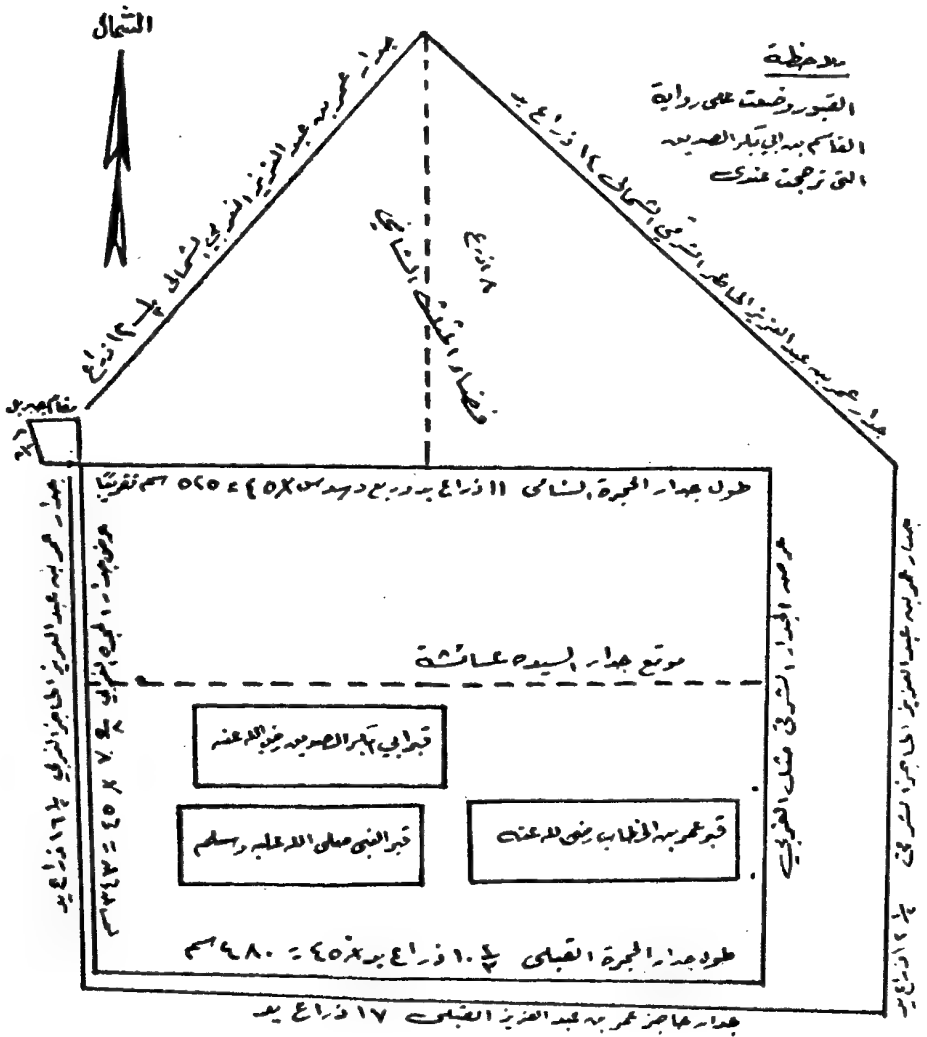 الشمال
ملاحظة
القبور وضعت على رواية
القاسم بن ابي بكر الصديق
التي ترجحت عندى
جدار عمر بن عبد العزيز الغربي الشمالى ذراع
جدار عمر بن عبد العزيز الحاجز الشرقي الشمالى ١٤ ذراع يد
٨ اذرع
فضاء المثلث الشامي
مقام جبريل
طول جدار الحجرة الشامى ١١ ذراع يد وربع وسدس × ٤٥ = ٥٢٥ سم تقريبًا
جدار عمر بن عبد العزيز الحاجز الغربي ذراع يد
عرض الجدار الشرقي مثل الغربي
جدار عمر بن عبد العزيز الحاجز الشرقي ذراع يد
موقع جدار السيدة عائشة
قبر ابي بكر الصديق رضي الله عنه
قبر النبي صلى الله عليه وسلم
قبر عمر بن الخطاب رضي الله عنه
طول جدار الحجرة القبلى ١٠ ٢/٣ ذراع يد × ٤٥ = ٤٨٠ سم
جدار حاجز عمر بن عبد العزيز القبلى ١٧ ذراع يد